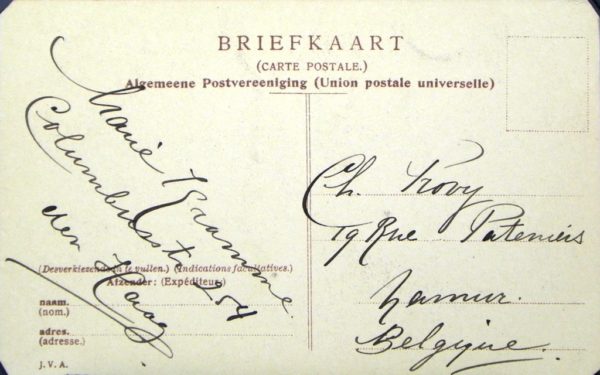 BRIEFKAART
(CARTE POSTALE.)
Algemeene Postvereeniging (Union postale universelle)
Marie Kramme.
Columbusstr 254
den Haag.
Ch. Rovy
19 Rue Pateniers
Namur.
Belgique.
(Desverkiezende in te vullen.) (Indications facultatives.)
Afzender: (Expéditeur)
naam.
(nom.)
adres.
(adresse.)
J. V. A.